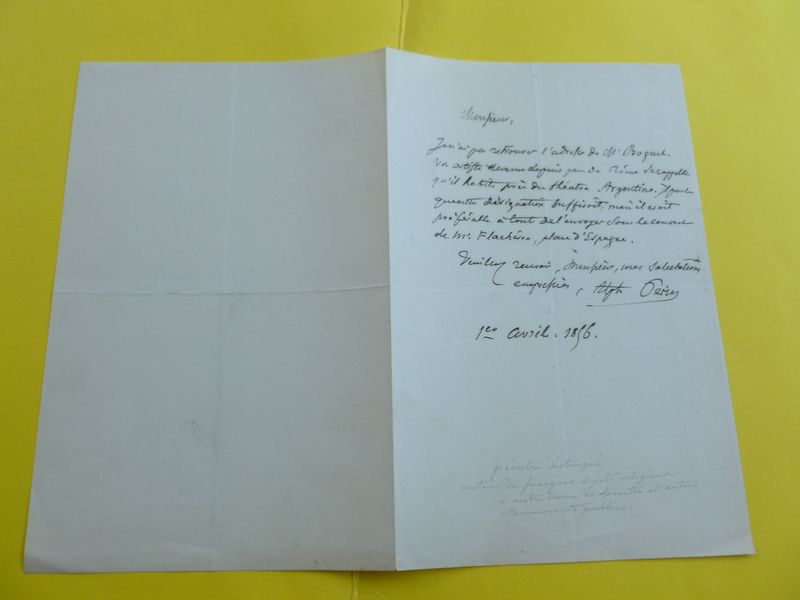 Monsieur,
Je n'ai pu retrouver l'adresse de Mr
Un artiste revenu depuis peu de Rôme se rappelle
qu'il habite près du théatre Argentina.
cette désignation suffirait, mais il serait
préférable à tout de l'envoyer sous le couvert
de Mr. Flachéron, place d'Espagne.
Veuillez recevoir, Monsieur, mes salutations
empressées, Alph Périn
1er avril. 1856.
peintre distingué
auteur de fresques sujets religieux
à notre Dame de Lorette et autres
Monuments publics